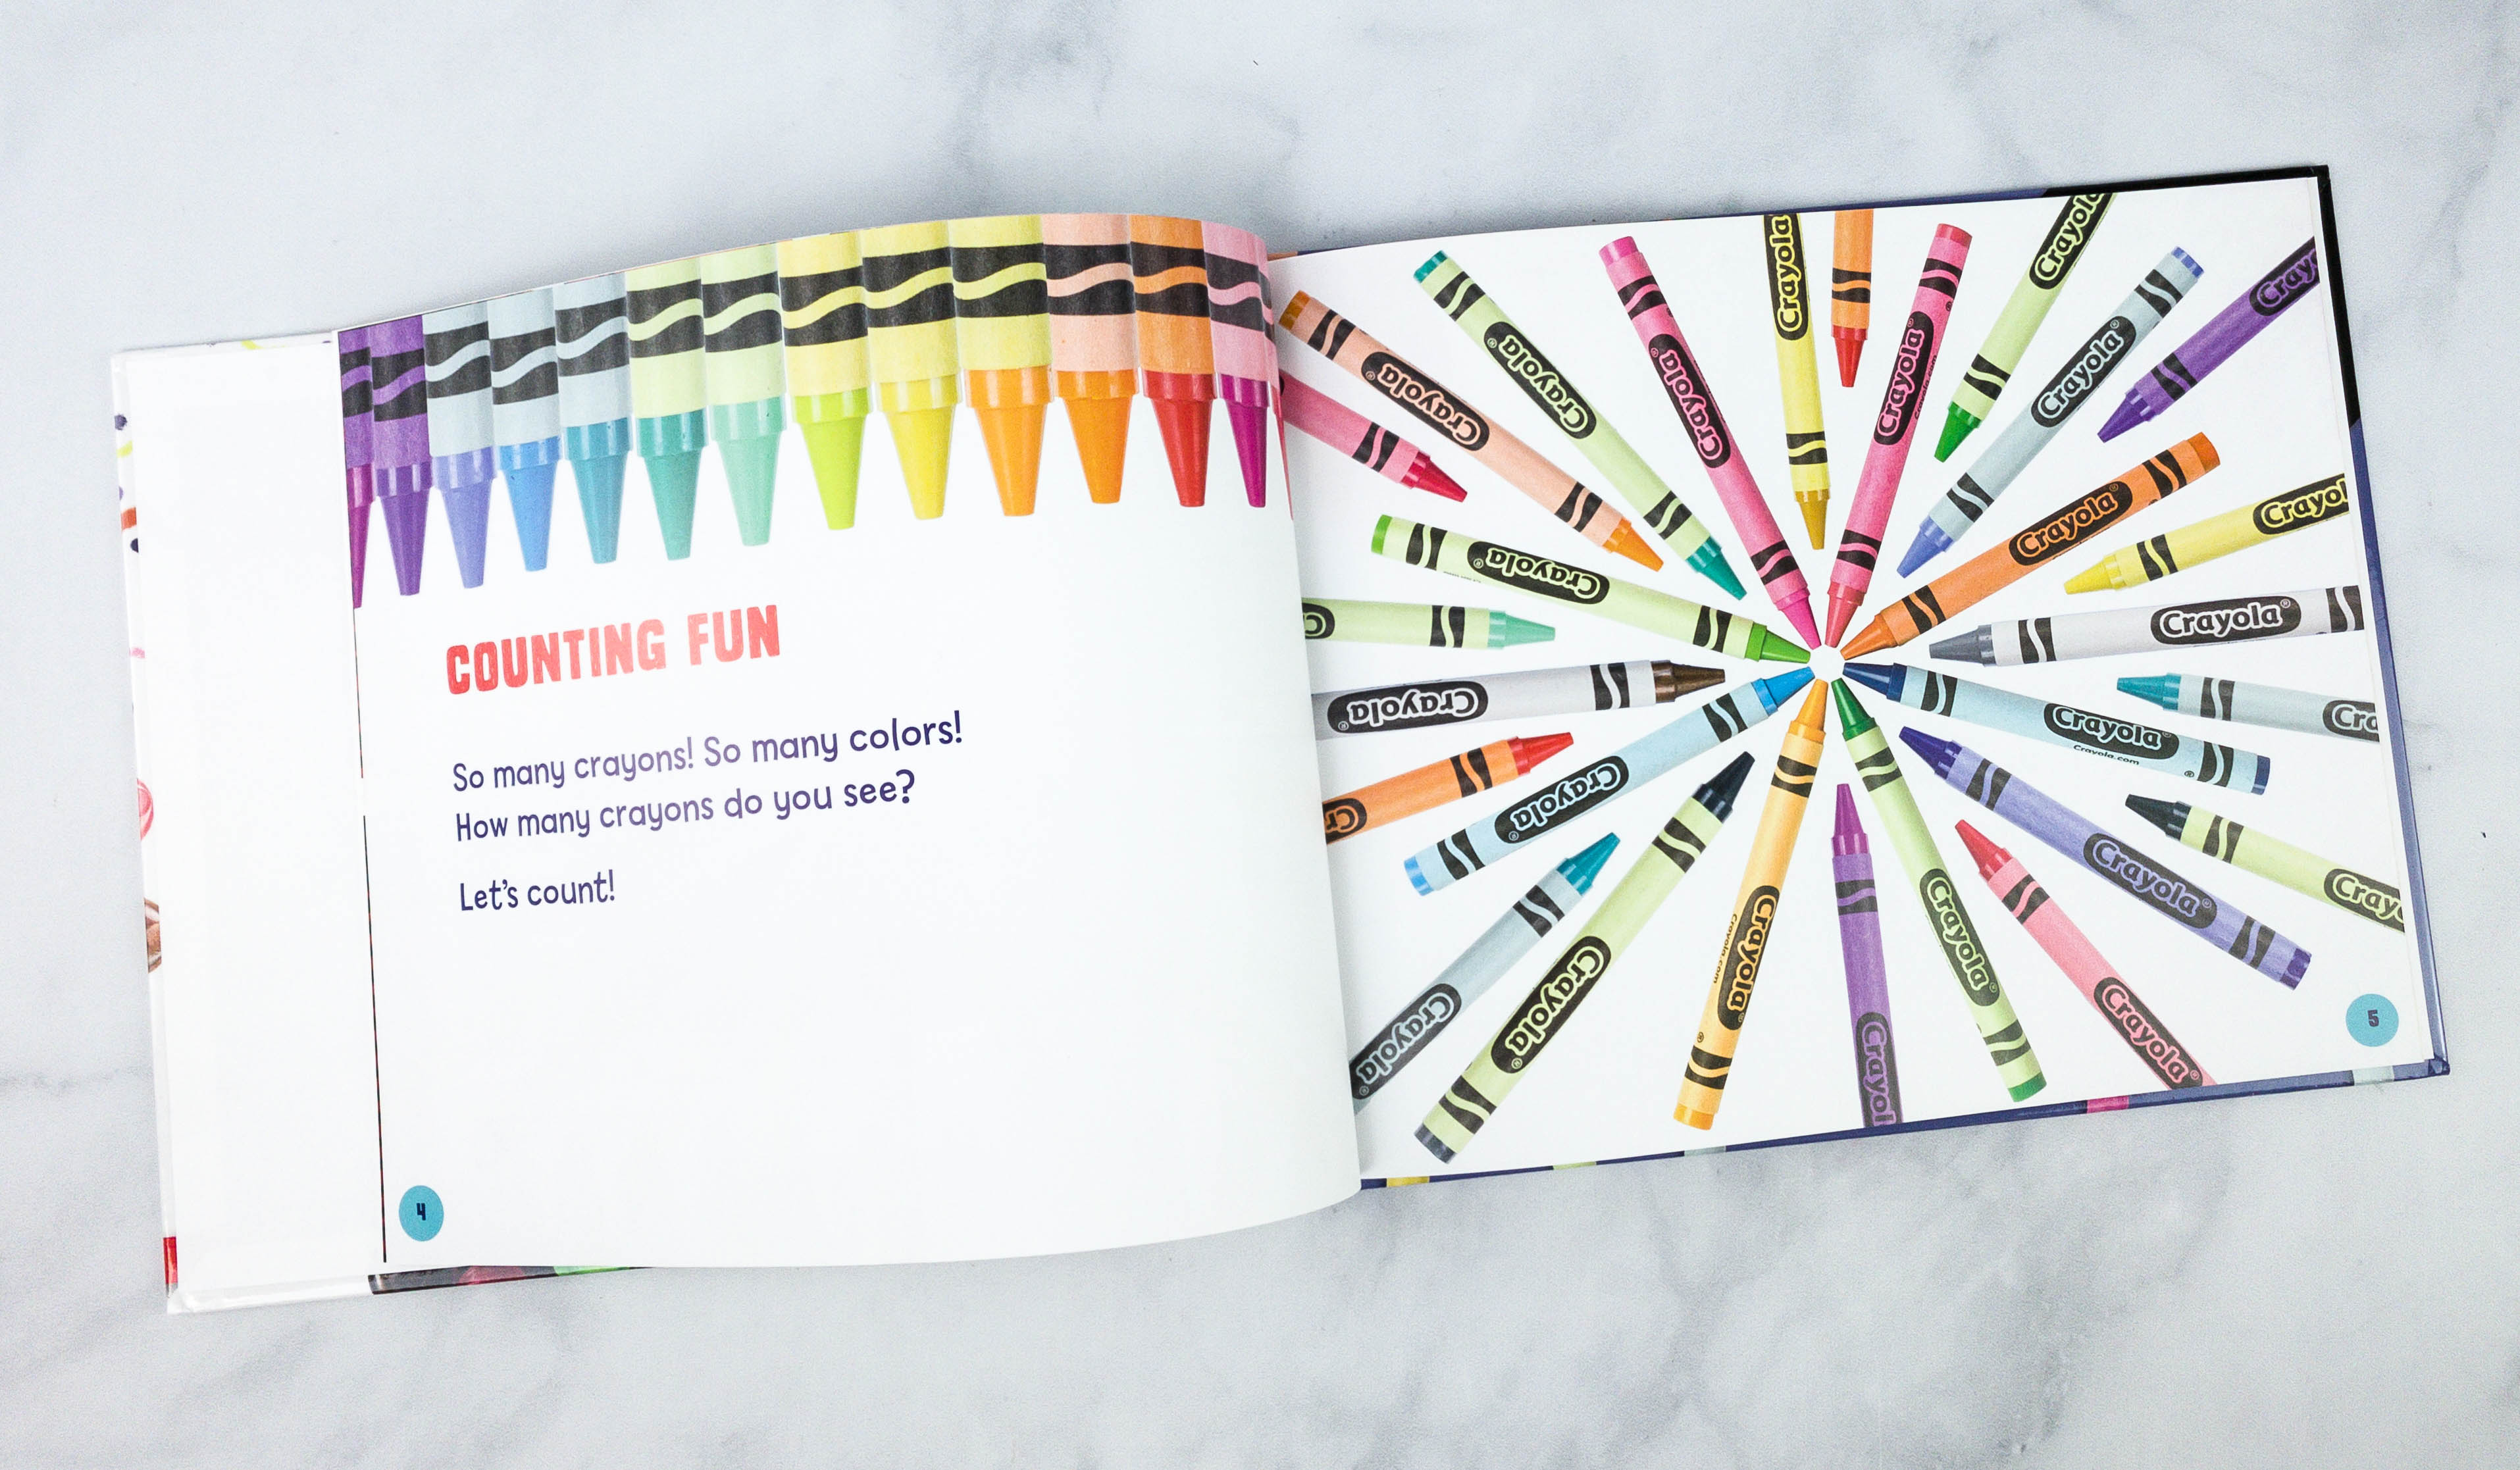 COUNTING FUN
So many crayons! So many colors!
How many crayons do you see?
Let's count!
4
Crayola
Crayola
Crayola
Crayola
Crayola
Crayola
Crayola
Cray
Crayola
Crayola
Crayol
Crayola
C
Crayola
Cra
Crayola
Crayola.com
Cr
Crayola
Crayola
Cray
Crayola
Crayola
Crayola
Crayola.com
Crayola
Crayola
Crayol
5